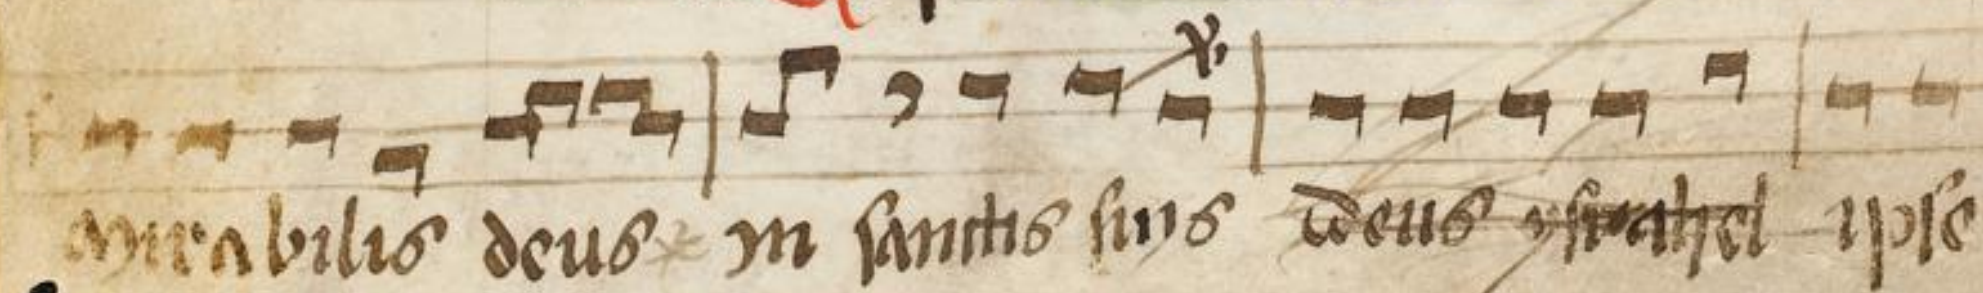 Mirabilis deus * in sanctis suis Deus ysrahel ipse